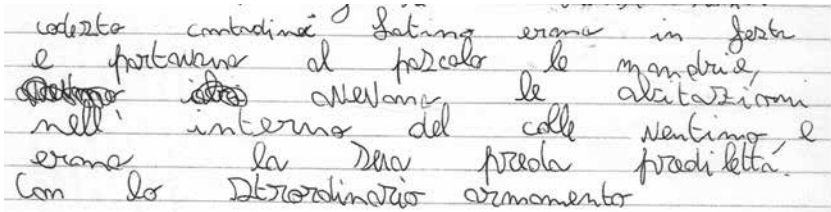 codesto contadine Latino erano in festa
e portavano al pascolo le mandrie,
avevano le abitazioni
nell' interno del colle Ventimo e
erano la sera preda prediletta.
Con lo straordinario armamento